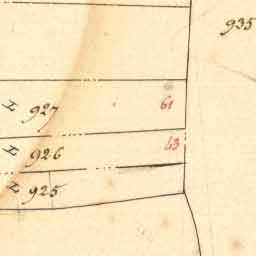 935
927 61
926 63
925